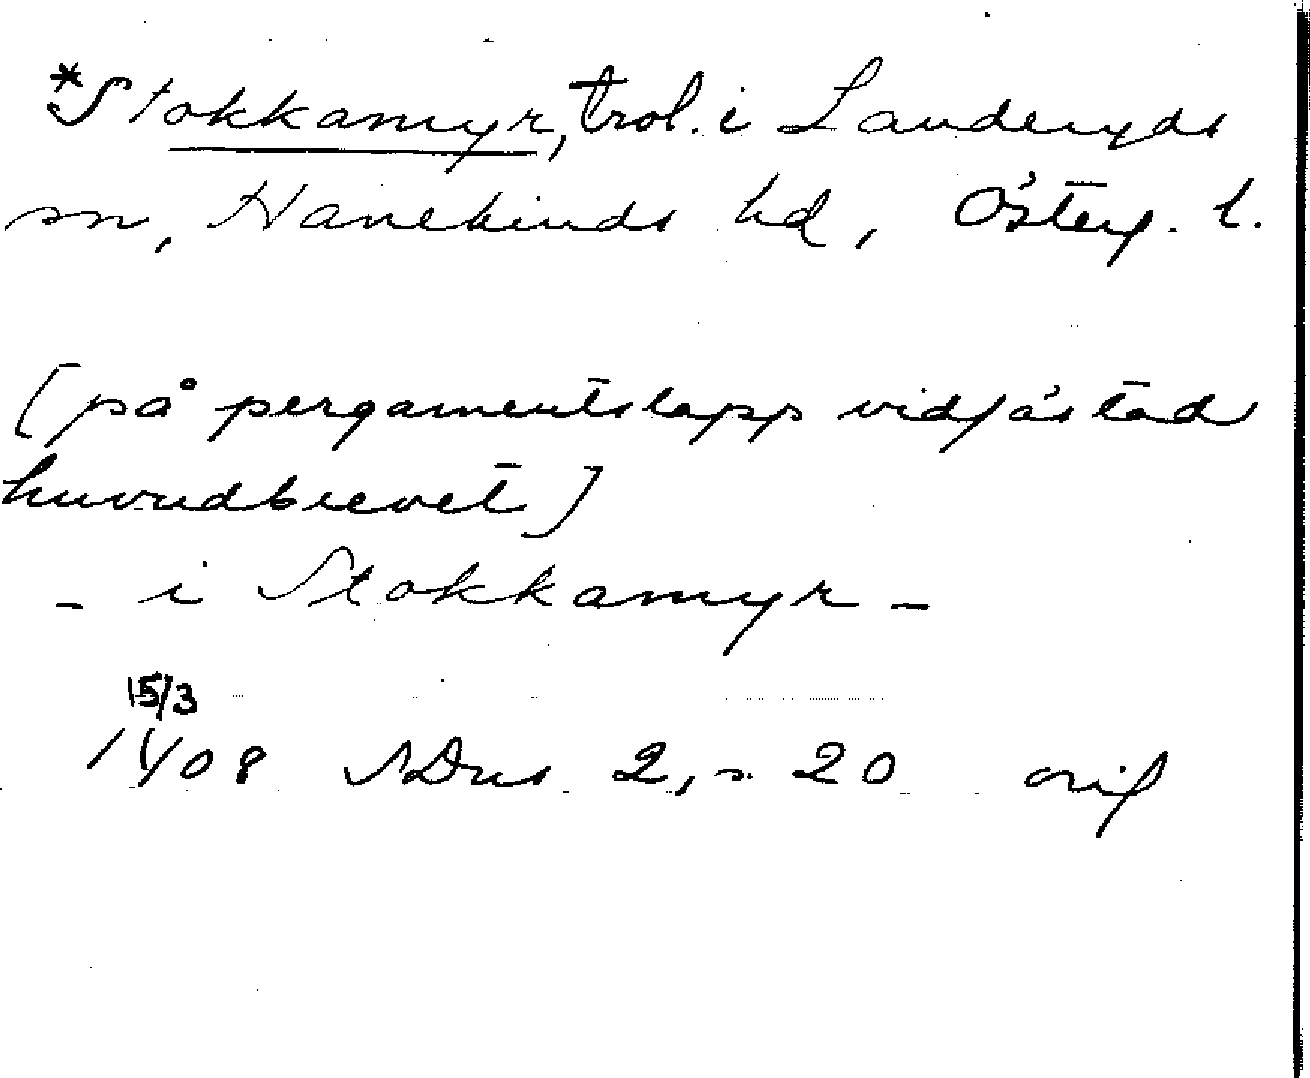 *Stokkamyr, trol. i Landeryds
sn, Hanekinds hd, Österg. l.
[på pergamentslapp vidfästad
huvudbrevet]
- i Stokkamyr -
15/3
1408 SDns 2, s. 20 orig